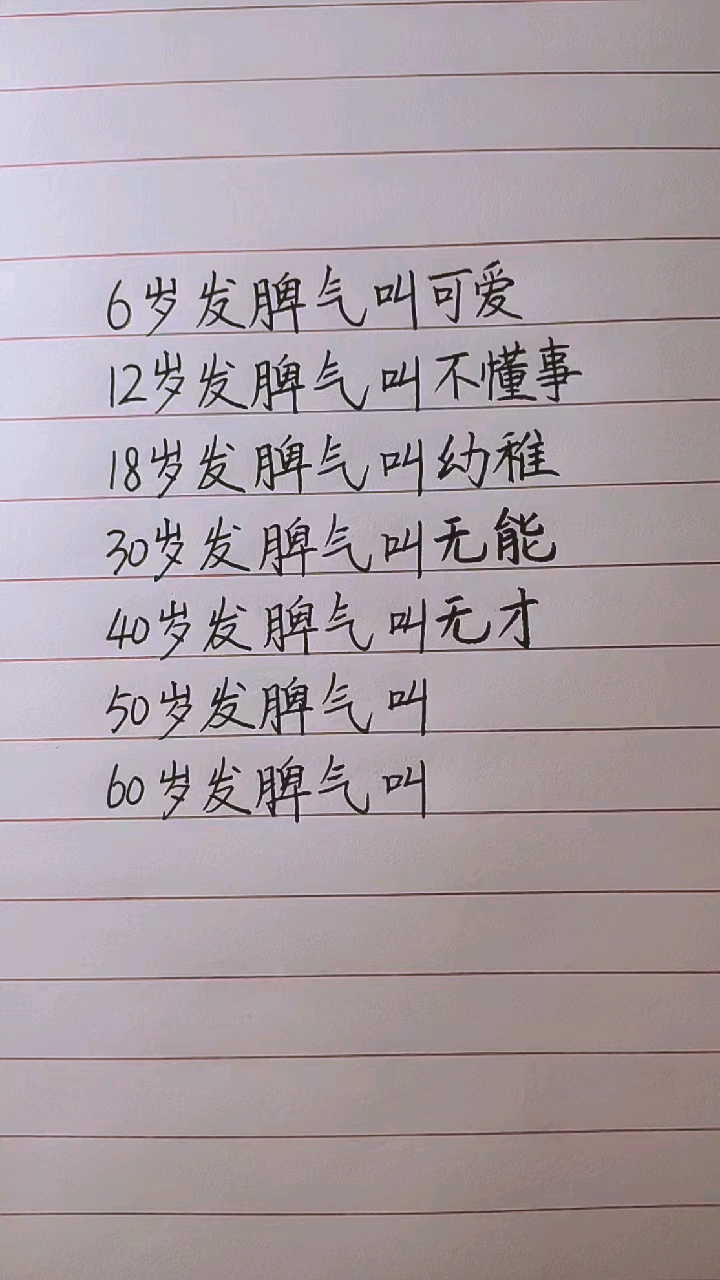 6岁发脾气叫可爱
12岁发脾气叫不懂事
18岁发脾气叫幼稚
30岁发脾气叫无能
40岁发脾气叫无才
50岁发脾气叫
60岁发脾气叫